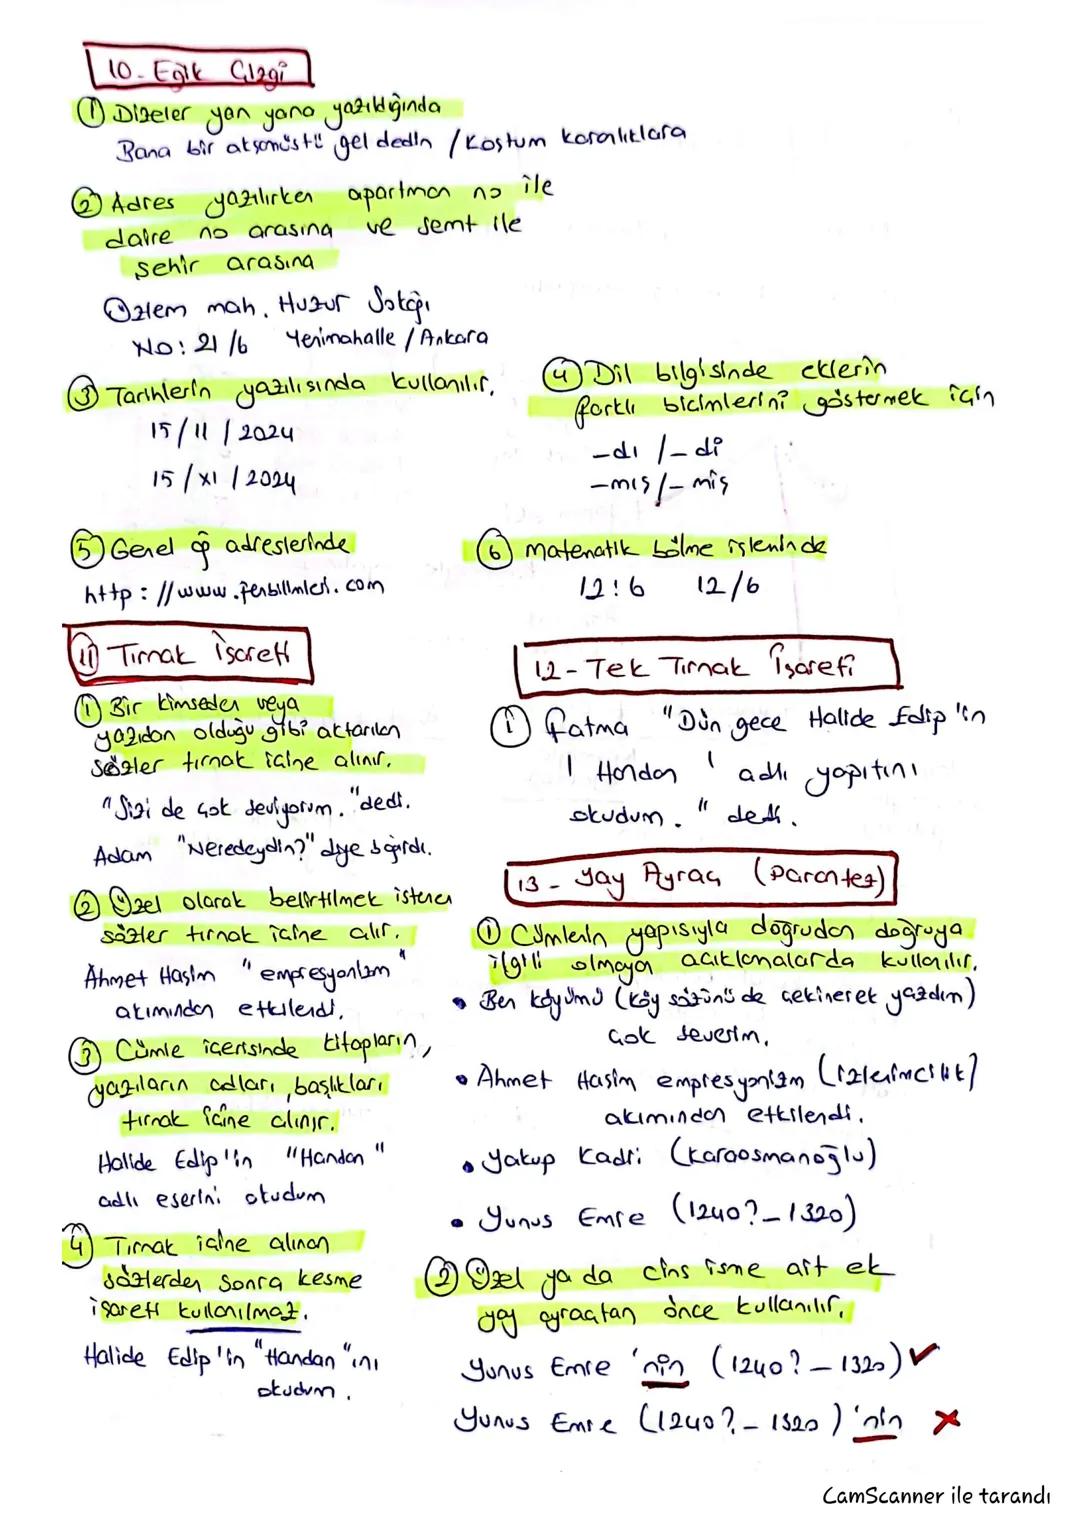 10- Eğik Çizgi
① Dizeler yan yana yazıldığında
Bana bir akşamüstü gel dedin / Koştum karanlıklara
② Adres yazılırken apartman no ile
daire no arasına ve semt ile
şehir arasına
Özlem mah. Huzur Sokağı
No: 21/6 Yenimahalle / Ankara
③ Tarihlerin yazılısında kullanılır.
15/11/2024
15/XI/2024
④ Dil bilgisinde eklerin
farklı biçimlerini göstermek için
-dı /-di
-mış/-miş
⑤ Genel ağ adreslerinde
http://www.fenbilimleri.com
⑥ matematik bölme işleminde
12:6 12/6
11 Tırnak İşareti
① Bir kimseden veya
yazıdan olduğu gibi aktarılan
sözler tırnak içine alınır.
"Sizi de çok seviyorum." dedi.
Adam "Neredeydin?" diye bağırdı.
② Özel olarak belirtilmek istenen
sözler tırnak içine alır.
Ahmet Haşim "empresyonizm"
akımından etkilendi.
③ Cümle içerisinde kitapların,
yazıların adları, başlıkları
tırnak içine alınır.
Halide Edip'in "Handan"
adlı eserini okudum
④ Tırnak içine alınan
sözlerden sonra kesme
işareti kullanılmaz.
Halide Edip'in "Handan"ını
okudum.
12- Tek Tırnak İşareti
① Fatma "Dün gece Halide Edip'in
' Handan ' adlı yapıtını
okudum." dedi.
13- Yay Ayraç (Parantez)
① Cümlenin yapısıyla doğrudan doğruya
ilgili olmayan açıklamalarda kullanılır.
• Ben köyümü (köy sözünü de çekinerek yazdım)
çok severim.
• Ahmet Haşim empresyonizm (izlenimcilik)
akımından etkilendi.
• Yakup Kadri (Karaosmanoğlu)
• Yunus Emre (1240?-1320)
② Özel ya da cins isme ait ek
yay ayraçtan önce kullanılır.
Yunus Emre'nin (1240?-1320) ✓
Yunus Emre (1240?-1320)'nin ✗
CamScanner ile tarandı